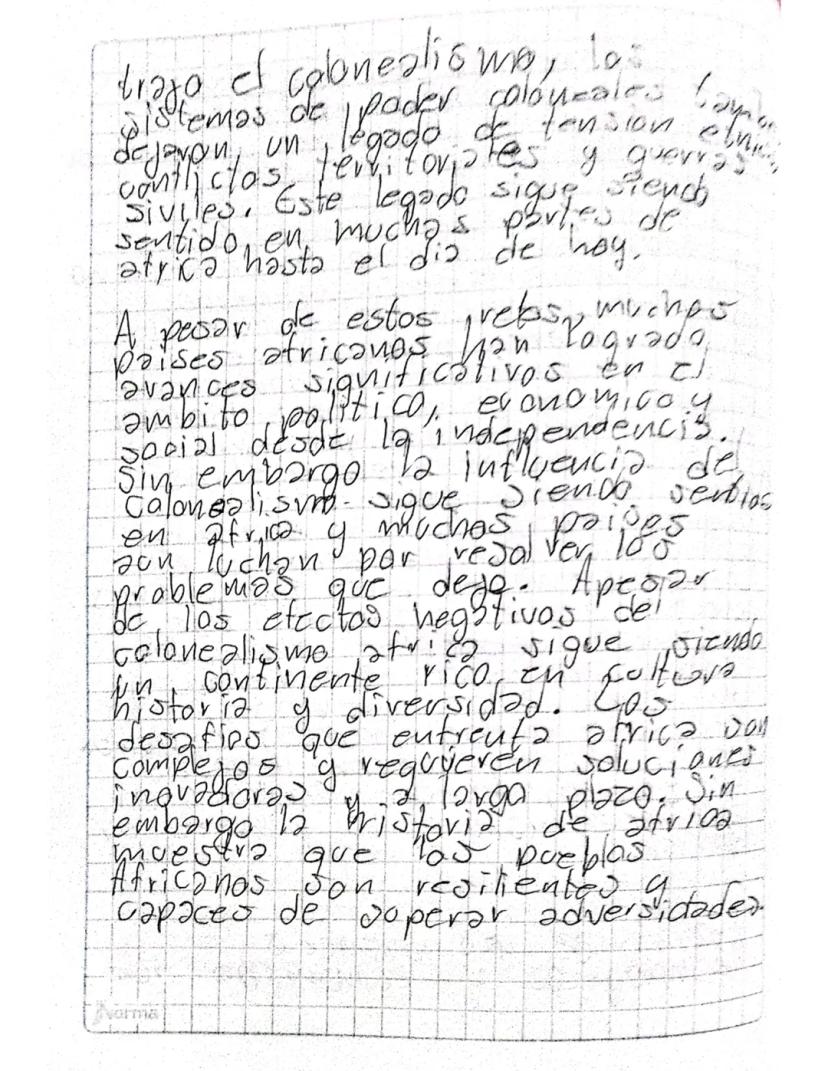 trajo el colonealismo, los
sistemas de poder coloneales tam
dejaron un legado de tension etni
conflictos territoriales y guerras
siviles. Este legado sigue siendo
sentido en muchas partes de
africa hasta el dia de hoy.
A pesar de estos retos muchos
paises africanos han logrado
avances significativos en el
ambito politico, economico y
social desde la independencia.
Sin embargo la influencia de
colonealismo sigue siendo
en africa y muchos paises
aun luchan por resolver los
problemas que dejo. Apesar
de los efectos negativos del
colonealismo africa sigue siendo
un continente rico en cultura
historia y diversidad. Los
desafios que enfrenta africa son
complejos y requyeren soluciones
inovadoras y a largo plazo. Sin
embargo la historia de africa
muestra que los pueblos
Africanos son resilientes y
capaces de superar adversidades.
Norma